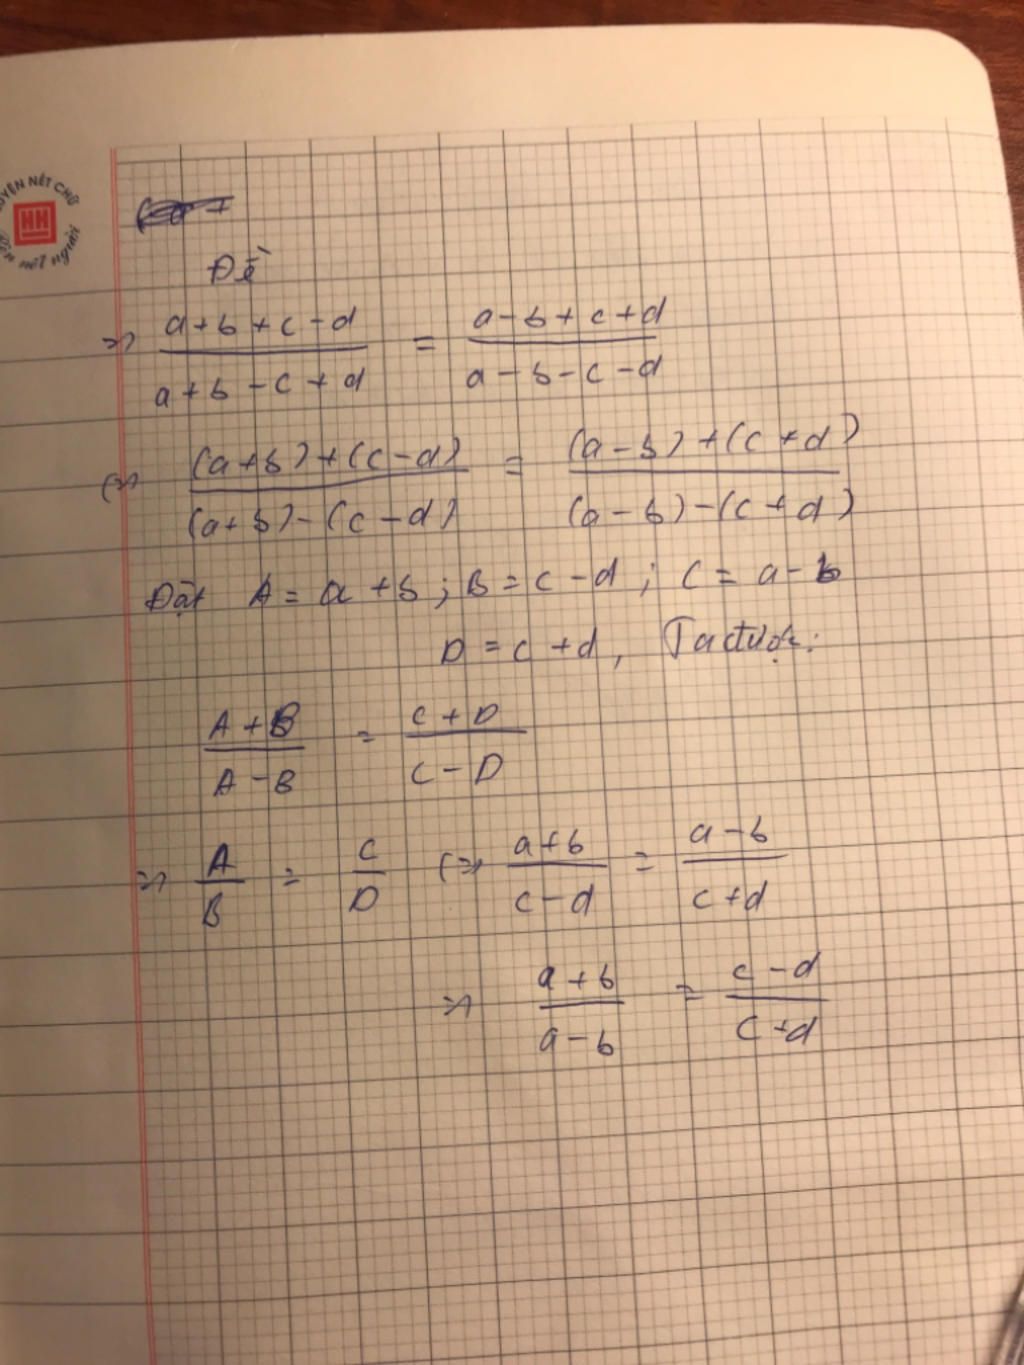 LUYỆN NÉT CHỮ
HH
Rèn nết người
Đề
=> (a+b+c-d)/(a+b-c+d) = (a-b+c+d)/(a-b-c-d)
(=> ((a+b)+(c-d))/((a+b)-(c-d)) = ((a-b)+(c+d))/((a-b)-(c+d))
Đặt A = a+b; B = c-d; C = a-b
D = c+d, Ta được:
(A+B)/(A-B) = (C+D)/(C-D)
=> A/B = C/D (=> (a+b)/(c-d) = (a-b)/(c+d)
=> (a+b)/(a-b) = (c-d)/(c+d)